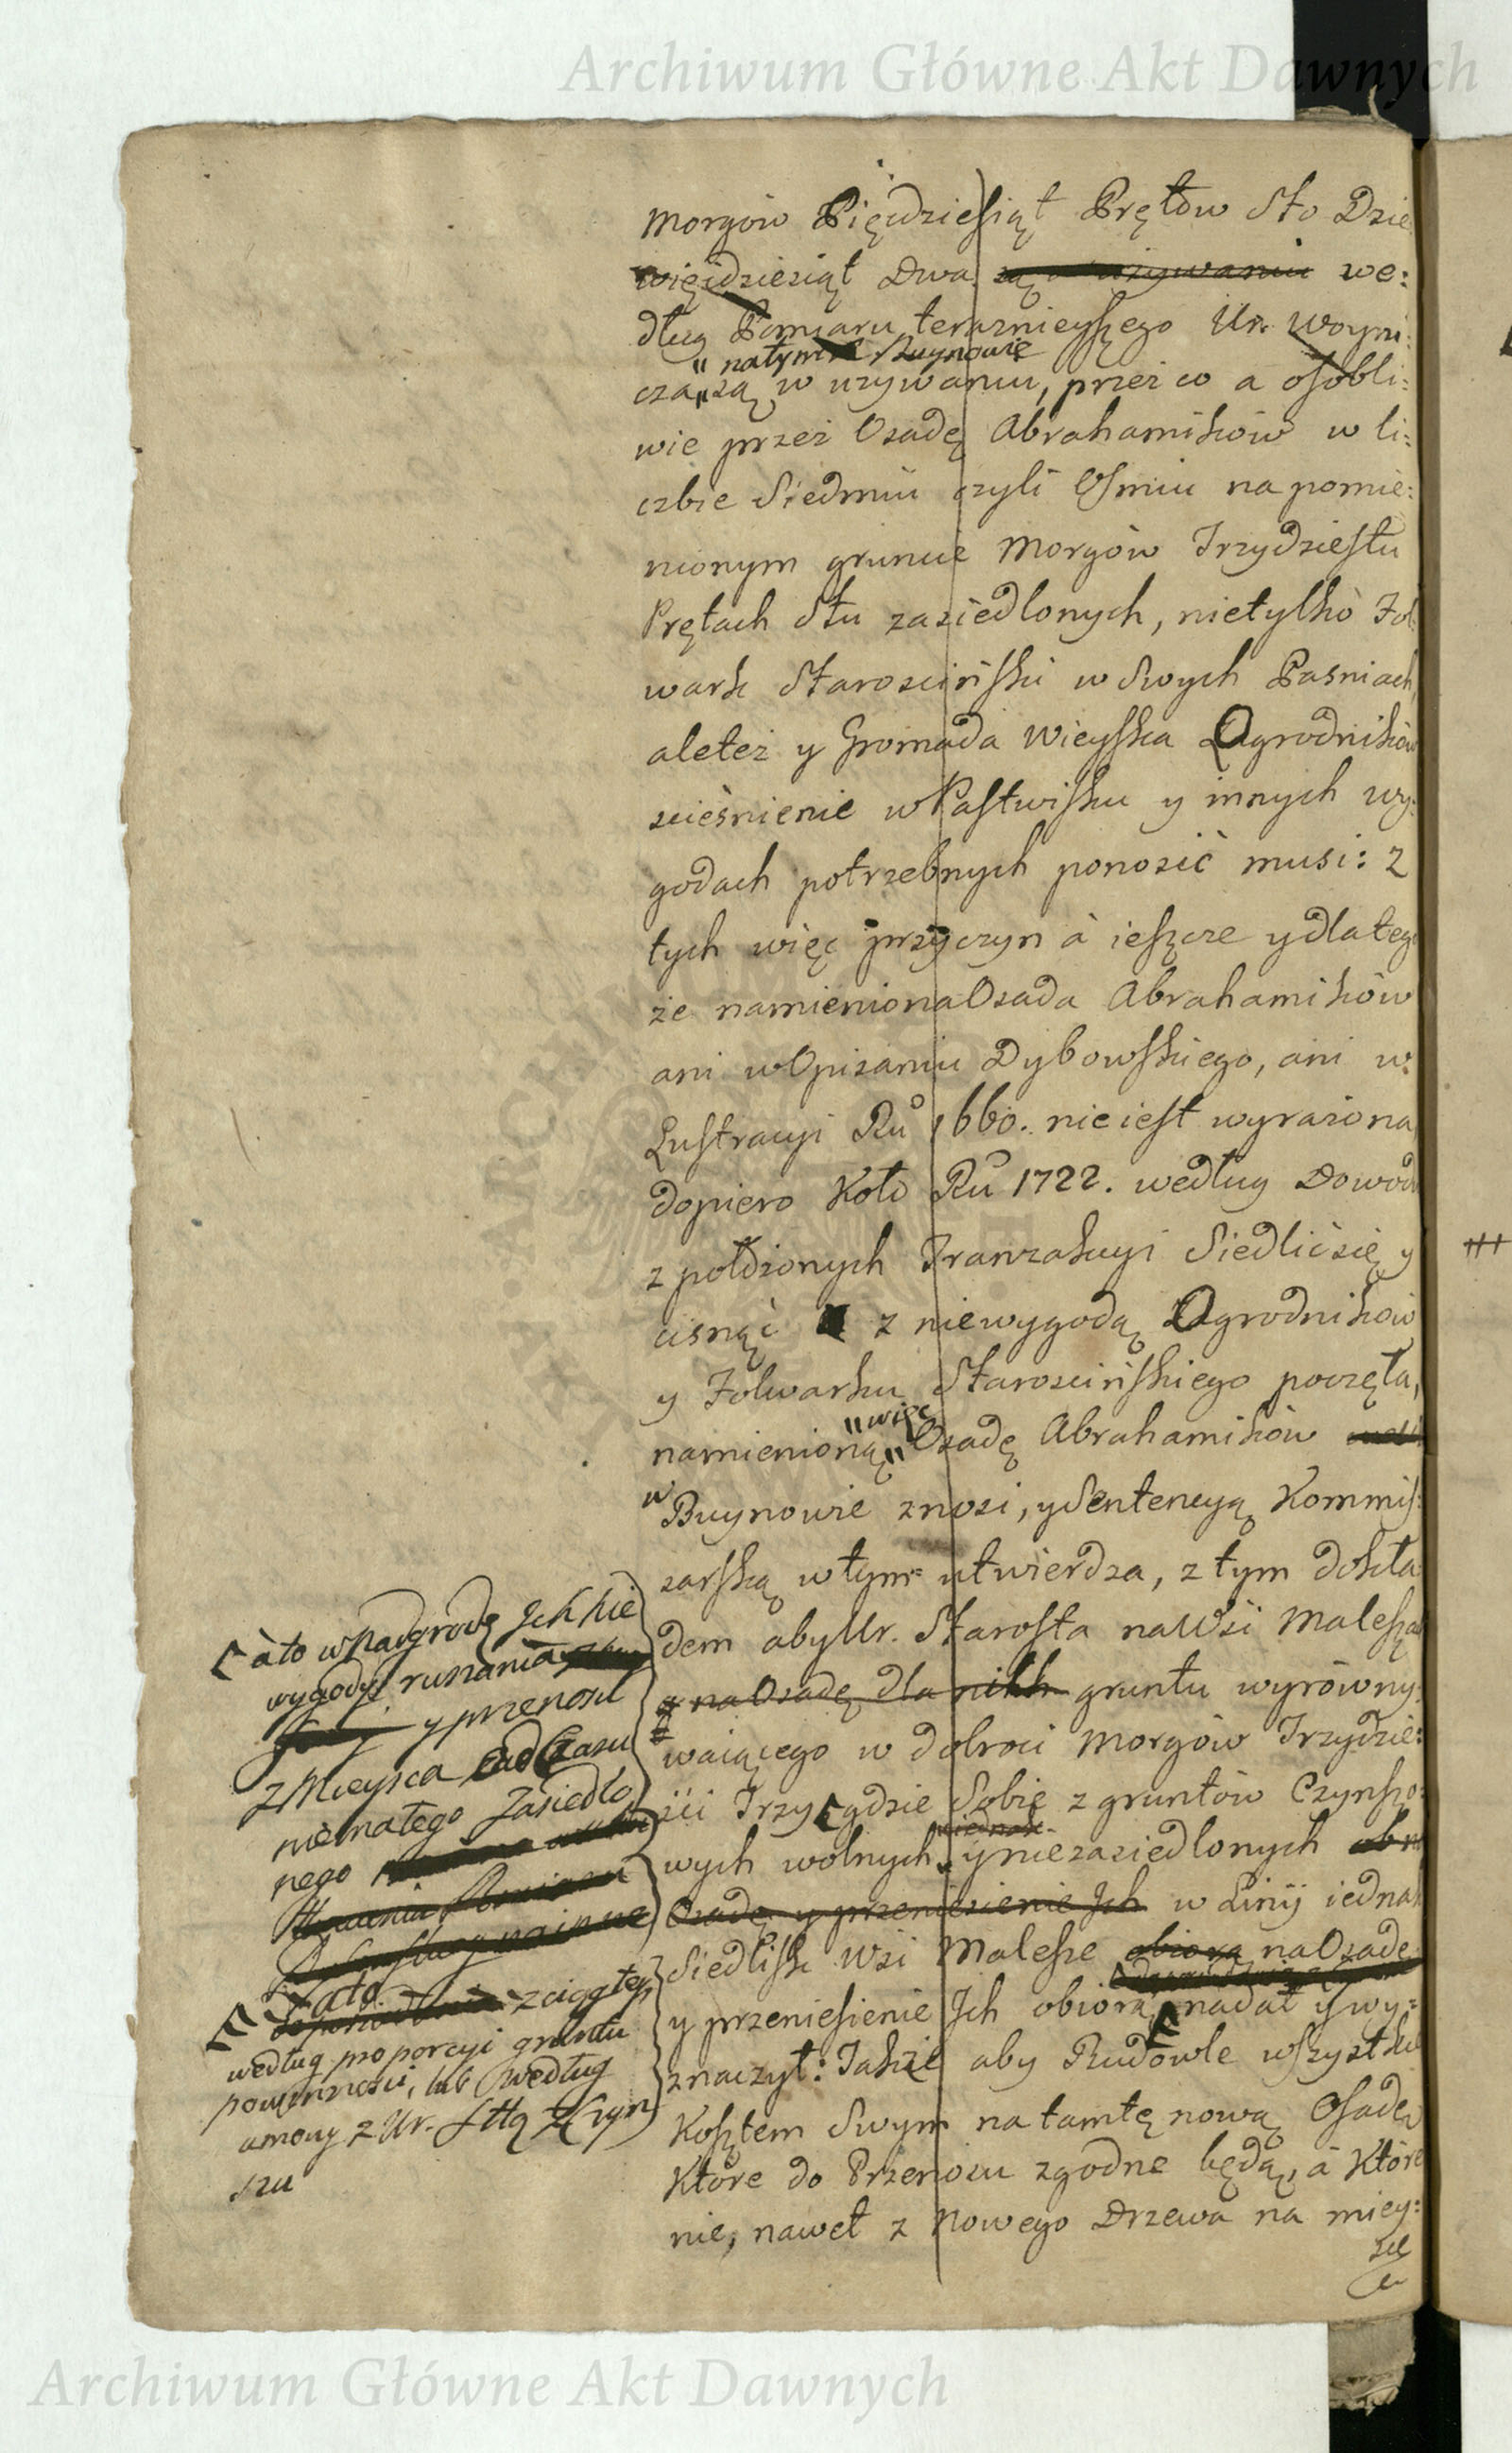 Archiwum Główne Akt Dawnych
Morgow Pięćdziesiąt Prętow Sto Dzie
więćdziesiąt Dwa są w uzywaniu we:
dług Pomiaru teraznieyszego Ur. Woyni:
"na tym Buynowie
cza "są w uzywaniu, przez co a osobli:
wie przez Osadę Abrahamikow w li:
czbie Siedmiu czyli Osmiu na pomie:
nionym gruncie Morgow Trzydziestu
Prętach Stu zasiedlonych, nietylko Fol:
wark Starosciński w Swych Pasniach,
aletez y Gromada Wieyska Ogrodnikow
scieśnienie w Pastwisku y innych wy:
godach potrzebnych ponosić musi: z
tych więc przyczyn à ieszcze y dlatego
ze namieniona Osada Abrahamikow
ani w Opisaniu Dybowskiego, ani w:
Lustracyi Ru 1660. nie iest wyrazona
dopiero koło Ru 1722. według Dowodu
z połozonych Tranzakcyi Siedlić się y
cisnąć z niewygodą Ogrodnikow
y Folwarku Starościńskiego poczęła,
"więc
namienioną" Osadę Abrahamikow
w Buynowie znosi, y Sentencyą Kommis:
sarską w tym utwierdza, z tym dokła
dem aby Ur. Starosta na Wsi Malesza
y na Osadę dla nich gruntu wyrowny:
waiącego w dobroci Morgow Trzydzie:
ści Trzy gdzie Sobie z gruntow Czynszo:
wych wolnych y niezasiedlonych
Osadę y przeniesienie Ich w Linij iednak
Siedlisk Wsi Malesze obiorą na Osadę
y przeniesienie Ich obiorą nadał y wy:
znaczył: Takze aby Budowle wszystkie
Kosztem Swym na tamtę nową Osadę
Ktore do Przenosu zgodne będą, à Ktore
nie, nawet z Nowego Drzewa na miey:
sce
à to w Nadgrodę Ich nie
wygody ruszania
y przenosu
z Mieysca od Czasu
niemałego Zasiedlo
nego
à to zciągłey
według proporcyi gruntu
powinnosci, lub według
umowy z Ur. Sttą z Czyn
szu
Archiwum Główne Akt Dawnych